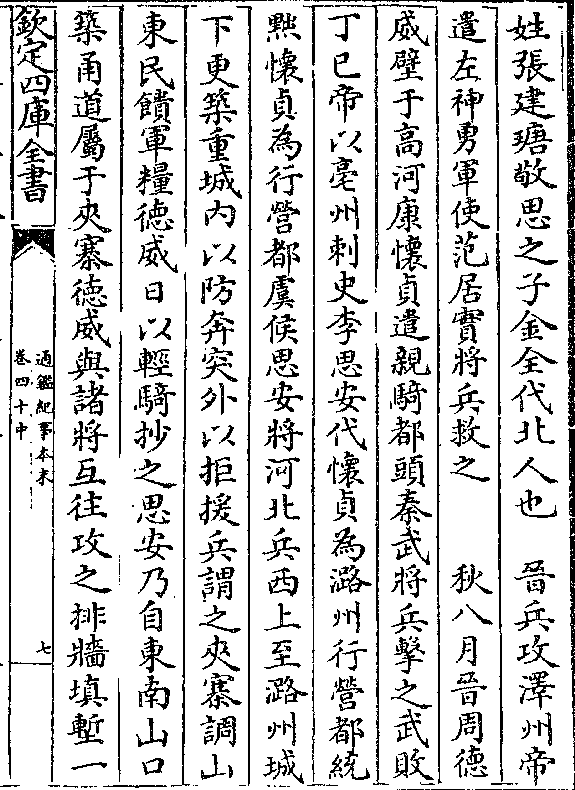 姓張建瑭敬思之子金全代北人也　晉兵攻澤州帝
遣左神勇軍使范居實將兵救之　　秋八月晉周德
威壁于高河康懷貞遣親騎都頭秦武將兵擊之武敗
丁巳帝以亳州刺史李思安代懷貞為潞州行營都統
黜懷貞為行營都虞候思安將河北兵西上至潞州城
下更築重城内以防奔突外以拒援兵謂之夾寨調山
東民饋軍糧德威日以輕騎抄之思安乃自東南山口
築甬道屬于夾寨德威與諸將互往攻之排牆填塹一
欽定四庫全書
通鑑紀事本末
卷四十中
七